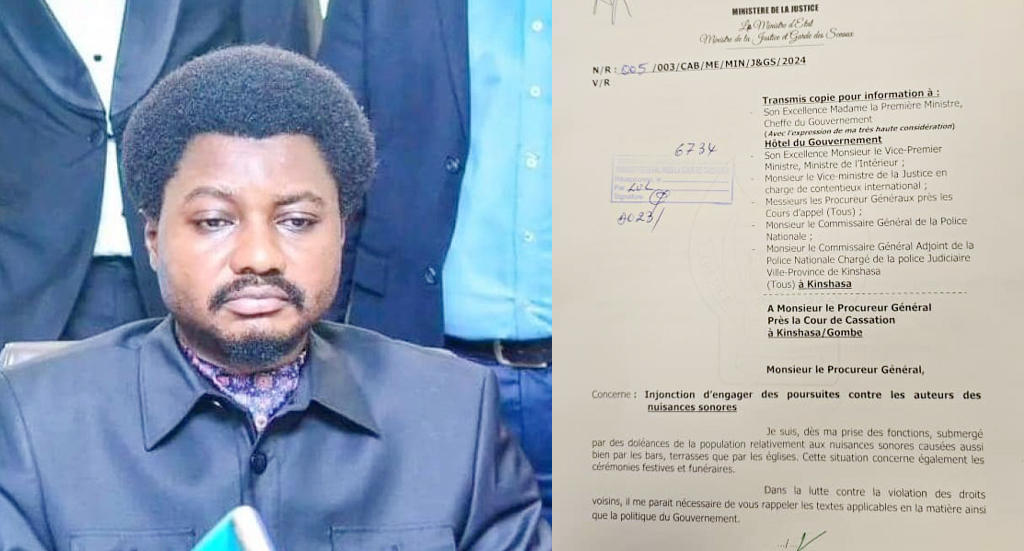 MINISTERE DE LA JUSTICE
Le Ministre d'Etat
Ministre de la Justice et Garde des Sceaux
N/R : 005 /003/CAB/ME/MIN/J&GS/2024
V/R
Transmis copie pour information à :
- Son Excellence Madame la Première Ministre,
Cheffe du Gouvernement
(Avec l'expression de ma très haute considération)
Hôtel du Gouvernement
- Son Excellence Monsieur le Vice-Premier
Ministre, Ministre de l'Intérieur ;
- Monsieur le Vice-ministre de la Justice en
charge de contentieux international ;
- Messieurs les Procureur Généraux près les
Cours d'appel (Tous) ;
- Monsieur le Commissaire Général de la Police
Nationale ;
- Monsieur le Commissaire Général Adjoint de la
Police Nationale Chargé de la police Judiciaire
Ville-Province de Kinshasa
(Tous) à Kinshasa
6734
Par
Signature
A Monsieur le Procureur Général
Près la Cour de Cassation
à Kinshasa/Gombe
Monsieur le Procureur Général,
Concerne : Injonction d'engager des poursuites contre les auteurs des
nuisances sonores
Je suis, dès ma prise des fonctions, submergé
par des doléances de la population relativement aux nuisances sonores causées aussi
bien par les bars, terrasses que par les églises. Cette situation concerne également les
cérémonies festives et funéraires.
Dans la lutte contre la violation des droits
voisins, il me parait nécessaire de vous rappeler les textes applicables en la matière ainsi
que la politique du Gouvernement.